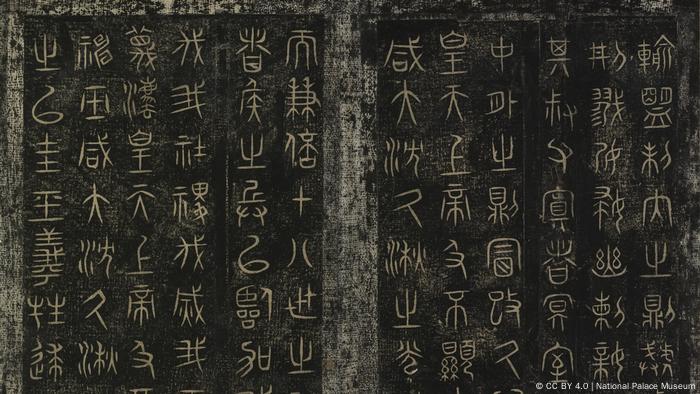 輸盟制内之則虣
刑戮孕婦幽刺親
其叔父寘者冥室
中外之則冒改久
皇天上帝及不顯
咸大沈久湫之光
而兼倍十八世之
者侯之兵以臨加
伐我社稷伐威我
蔑灋皇天上帝及
神巫咸大沈久湫
之以圭玉羲牲逑
© CC BY 4.0 | National Palace Museum